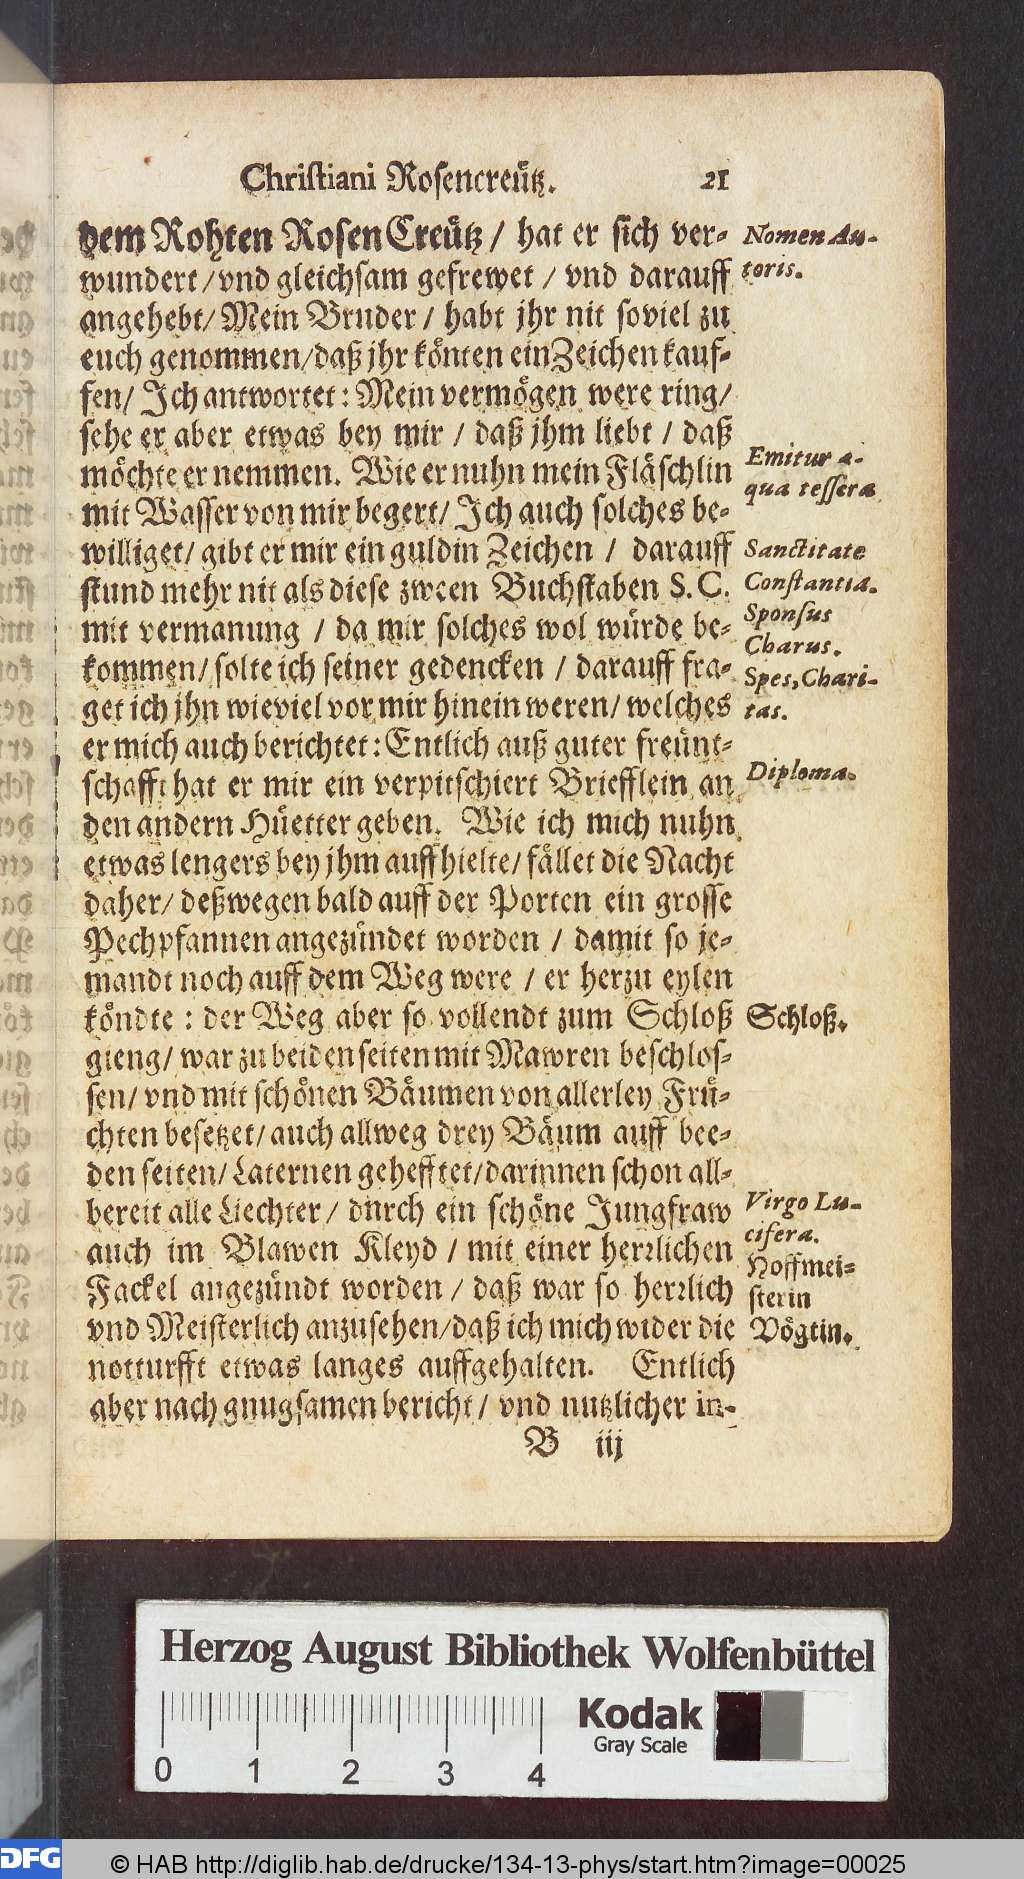 Christiani Rosencreütz. 21
dem Rohten RosenCreütz / hat er sich ver-
wundert / vnd gleichsam gefrewet / vnd darauff
angehebt / Mein Bruder / habt jhr nit soviel zu
euch genommen / daß jhr könten ein Zeichen kauf-
fen / Ich antwortet: Mein vermögen were ring /
sehe er aber etwas bey mir / daß jhm liebt / daß
möchte er nemmen. Wie er nuhn mein Fläschlin
mit Wasser von mir begert / Ich auch solches be-
williget / gibt er mir ein guldin Zeichen / darauff
stund mehr nit als diese zween Buchstaben S. C.
mit vermanung / da mir solches wol würde be-
kommen / solte ich seiner gedencken / darauff fra-
get ich jhn wieviel vor mir hinein weren / welches
er mich auch berichtet: Entlich auß guter freünt-
schafft hat er mir ein verpitschiert Briefflein an
den andern Hüetter geben. Wie ich mich nuhn
etwas lengers bey jhm auffhielte / fället die Nacht
daher / deßwegen bald auff der Porten ein grosse
Pechpfannen angezündet worden / damit so je-
mandt noch auff dem Weg were / er herzu eylen
köndte : der Weg aber so vollendt zum Schloß
gieng / war zu beiden seiten mit Mawren beschlos-
sen / vnd mit schönen Bäumen von allerley Frü-
chten besetzet / auch allweg drey Bäum auff bee-
den seiten / Laternen gehefftet / darinnen schon all-
bereit alle Liechter / durch ein schöne Jungfraw
auch im Blawen Kleyd / mit einer herrlichen
Fackel angezündt worden / daß war so herrlich
vnd Meisterlich anzusehen / daß ich mich wider die
notturfft etwas langes auffgehalten. Entlich
aber nach gnugsamen bericht / vnd nutzlicher in-
B iij
Nomen Au-
toris.
Emitur a-
qua tessera
Sanctitate
Constantia.
Sponsus
Charus.
Spes, Chari-
tas.
Diploma.
Schloß.
Virgo Lu-
cifera.
Hoffmei-
sterin
Vögtin.
Herzog August Bibliothek Wolfenbüttel
Kodak
Gray Scale
0 1 2 3 4
DFG © HAB http://diglib.hab.de/drucke/134-13-phys/start.htm?image=00025